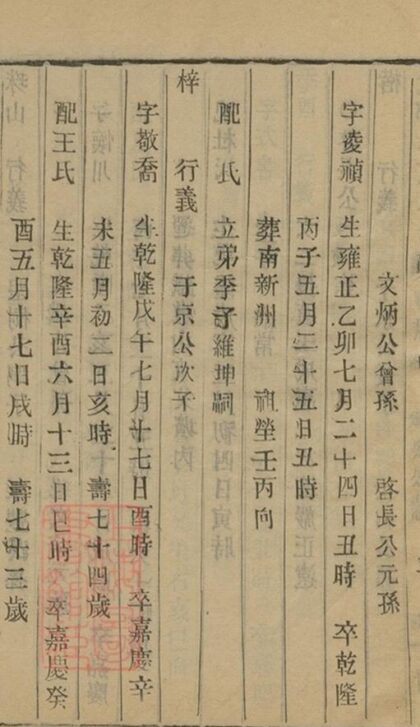 文炳公曾孫 啓長公元孫
字淩禎 生雍正乙卯七月二十四日丑時 卒乾隆
丙子五月二十五日丑時
葬南新洲 祖塋壬丙向
配 氏 立弟季子維坤嗣
梓 行義 于京公次子
字敬喬 生乾隆戊午七月廿七日酉時 卒嘉慶辛
未五月初三日亥時 壽七十四歲
配王氏 生乾隆辛酉六月十三日巳時 卒嘉慶癸
酉五月十七日戌時 壽七十三歲